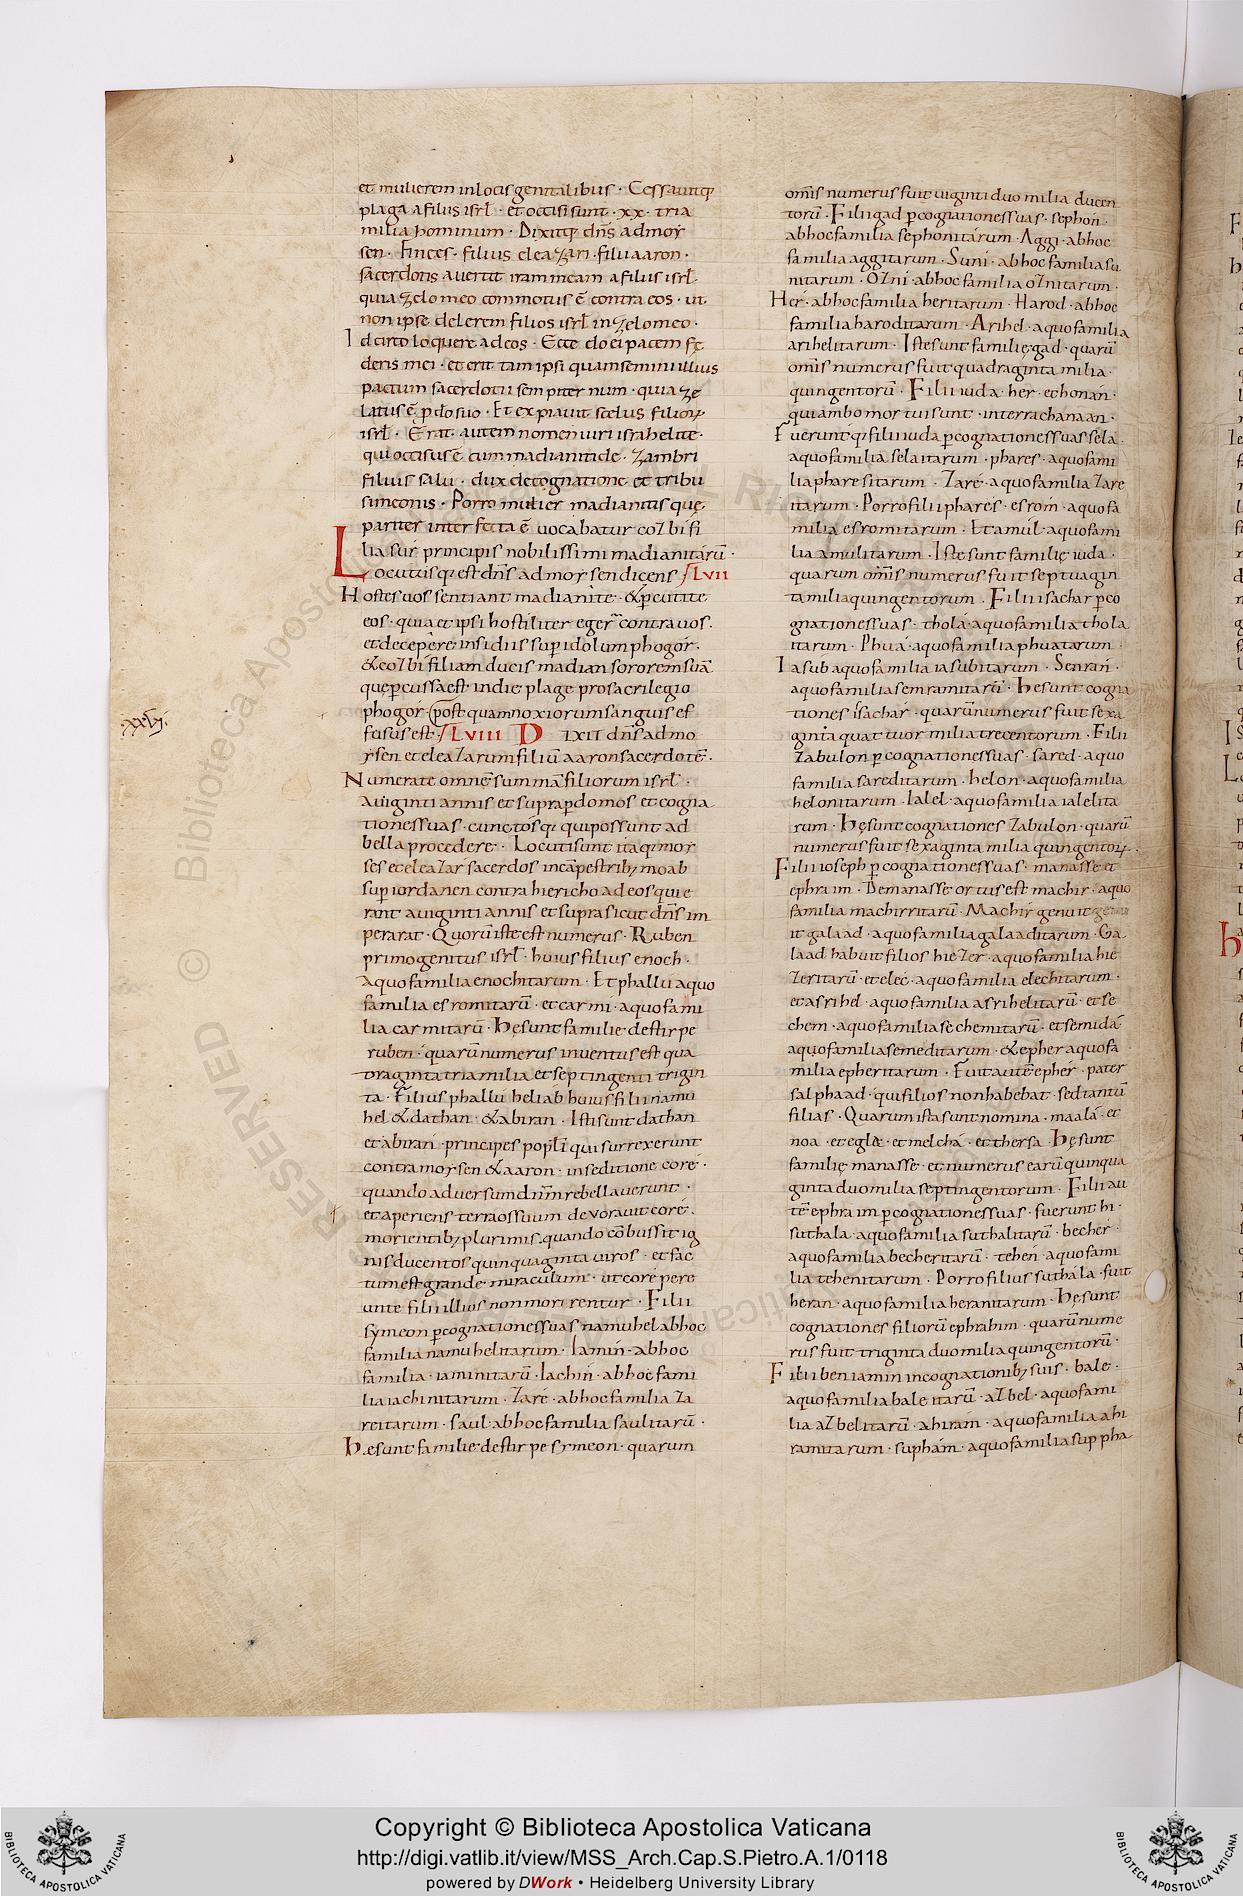 et mulierem in locis genitalibus · Cessauitq;
plaga a filiis isrl̅ · et occisi sunt · xx · tria
milia hominum · Dixitq; dn̅s ad moẏ
sen · Finees · filius eleazari · filii aaron ·
sacerdotis auertit iram meam a filiis isrl̅
quia zelo meo commotus ē contra eos · ut
non ipse delerem filios isrl̅ in zelo meo ·
Idcirco loquere ad eos · Ecce do ei pacem fę
deris mei · et erit tam ipsi quam semini illius
pactum sacerdotii sempiternum · quia ze
latus ē p̱ do̅ suo · Et expiauit scelus filioꝝ
isrl̅ · Erat autem nomen uiri israhelitę ·
qui occisus ē cum madianitide · zambri
filius salu · dux de cognatione et tribu
simeonis · Porro mulier madianitis quę
pariter interfecta ē uocabatur cozbi fi
lia sur principis nobilissimi madianitarū ·
Locutusq; est dn̅s ad moẏsen dicens LVII
Hostes uos sentiant madianite · & p̱cutite
eos · quia et ipsi hostiliter egeꝛ̄ contra uos ·
et decepere insidiis sup̱ idolum phogor ·
& cozbi filiam ducis madian sororem suā
quę p̱cussa est in die plage pro sacrilegio
phogor · postquam noxiorum sanguis ef
fusus est · LVIII DIXIT dn̅s ad mo
xxvi
ẏsen et eleazarum filiū aaron sacerdotē ·
Numerate omnē summā filiorum isrl̅ ·
a uiginti annis et supra p̱ domos et cogna
tiones suas · cunctosq; qui possunt ad
bella procedere · Locuti sunt itaq; moẏ
ses et eleazar sacerdos in cāpestrib; moab
sup̱ iordanen contra hiericho ad eos qui e
rant a uiginti annis et supra sicut dn̅s im
perarat · Quorū iste est numerus · Ruben
primogenitus isrl̅ · huius filius enoch ·
A quo familia enochitarum · Et phallu a quo
familia esromitarū · et carmi · a quo fami
lia carmitarū · Hę sunt familie de stirpe
ruben · quarū numerus inuentus est qua
draginta tria milia et septingenti trigin
ta · Filius phallu heliab huius filii namu
hel & dathan · & abiran · Isti sunt dathan
et abiran · principes popl̅i qui surrexerunt
contra moẏsen & aaron · in seditione core ·
quando aduersum dn̅m rebellauerunt ·
et aperiens terra os suum deuorauit core ·
morientib; plurimis · quando cōbussit ig
nis ducentos quinquaginta uiros · et fac
tum est grande miraculum · ut core pere
unte filii illios non morirentur · Filii
sẏmeon p̱ cognationes suas namuhel ab hoc
familia namuhelitarum · Iamin · ab hoc
familia · iaminitarū · Iachin · ab hoc fami
lia iachinitarum · Zare · ab hoc familia za
reitarum · saul ab hoc familia saulitarū ·
Hę sunt familie de stirpe sẏmeon · quarum
om̅is numerus fuit uiginti duo milia ducen
torū · Filii gad p̱ cognationes suas · sephon ·
ab hoc familia sephonitarum · Aggi · ab hoc
familia aggitarum · Suni · ab hoc familia su
nitarum · Ozni · ab hoc familia oznitarum ·
Her · ab hoc familia heritarum · Harod · ab hoc
familia haroditarum · Arihel · a quo familia
arihelitarum · Iste sunt familię gad · quarū
om̅is numerus fuit quadraginta milia ·
quingentorū · Filii iuda · her · et honan ·
qui ambo mortui sunt · in terra chanaan ·
Fueruntq; filii iuda p̱ cognationes suas sela ·
a quo familia selaitarum · phares · a quo fami
lia pharesitarum · Zare · a quo familia zare
itarum · Porro filii phares · esrom · a quo fa
milia esromitarum · Et amul · a quo fami
lia amulitarum · Iste sunt familię iuda ·
quarum om̅is numerus fuit septuagin
ta milia quingentorum · Filii isachar p̱ co
gnationes suas · thola · a quo familia thola
itarum · Phua · a quo familia phuatarum ·
Iasub a quo familia iasubitarum · Semran ·
a quo familia semranitarū · Hę sunt cogna
tiones isachar · quarū numerus fuit sexa
ginta quattuor milia trecentorum · Filii
zabulon p̱ cognationes suas · sared · a quo
familia sareditarum · helon · a quo familia
helonitarum · Ialel · a quo familia ialelita
rum · Hę sunt cognationes zabulon · quarū
numerus fuit sexaginta milia quingentoꝝ ·
Filii ioseph p̱ cognationes suas · manasse et
ephraim · De manasse ortus est machir · a quo
familia machirritarū · Machir genuit
it galaad · a quo familia galaaditarum · Ga
laad habuit filios hiezer · a quo familia hie
zeritarū · et elec · a quo familia elechitarum ·
et asrihel · a quo familia asrihelitarū · et se
chem · a quo familia sechemitarū · et semida
a quo familia semeditarum · & epher a quo fa
milia epheritarum · Fuit autē epher · pater
salphaad · qui filios non habebat · sed tantū
filias · Quarum ista sunt nomina · maala · et
noa · et egla · et melcha · et thersa · Hę sunt
familię manasse · et numerus earū quinqua
ginta duo milia septingentorum · Filii au
tē ephraim p̱ cognationes suas · fuerunt hi ·
suthala · a quo familia suthalitarū · becher ·
a quo familia becheritarū · tehen · a quo fami
lia tehenitarum · Porro filius suthala · fuit
heran · a quo familia heranitarum · Hę sunt
cognationes filiorū ephrahim · quarū nume
rus fuit triginta duo milia quingentorū ·
Filii beniamin in cognationib; suis · bale ·
a quo familia baleitarū · azbel · a quo fami
lia azbelitarū · ahiram · a quo familia ahi
ramitarum · supham · a quo familia suppha
Copyright © Biblioteca Apostolica Vaticana
http://digi.vatlib.it/view/MSS_Arch.Cap.S.Pietro.A.1/0118
powered by DWork • Heidelberg University Library